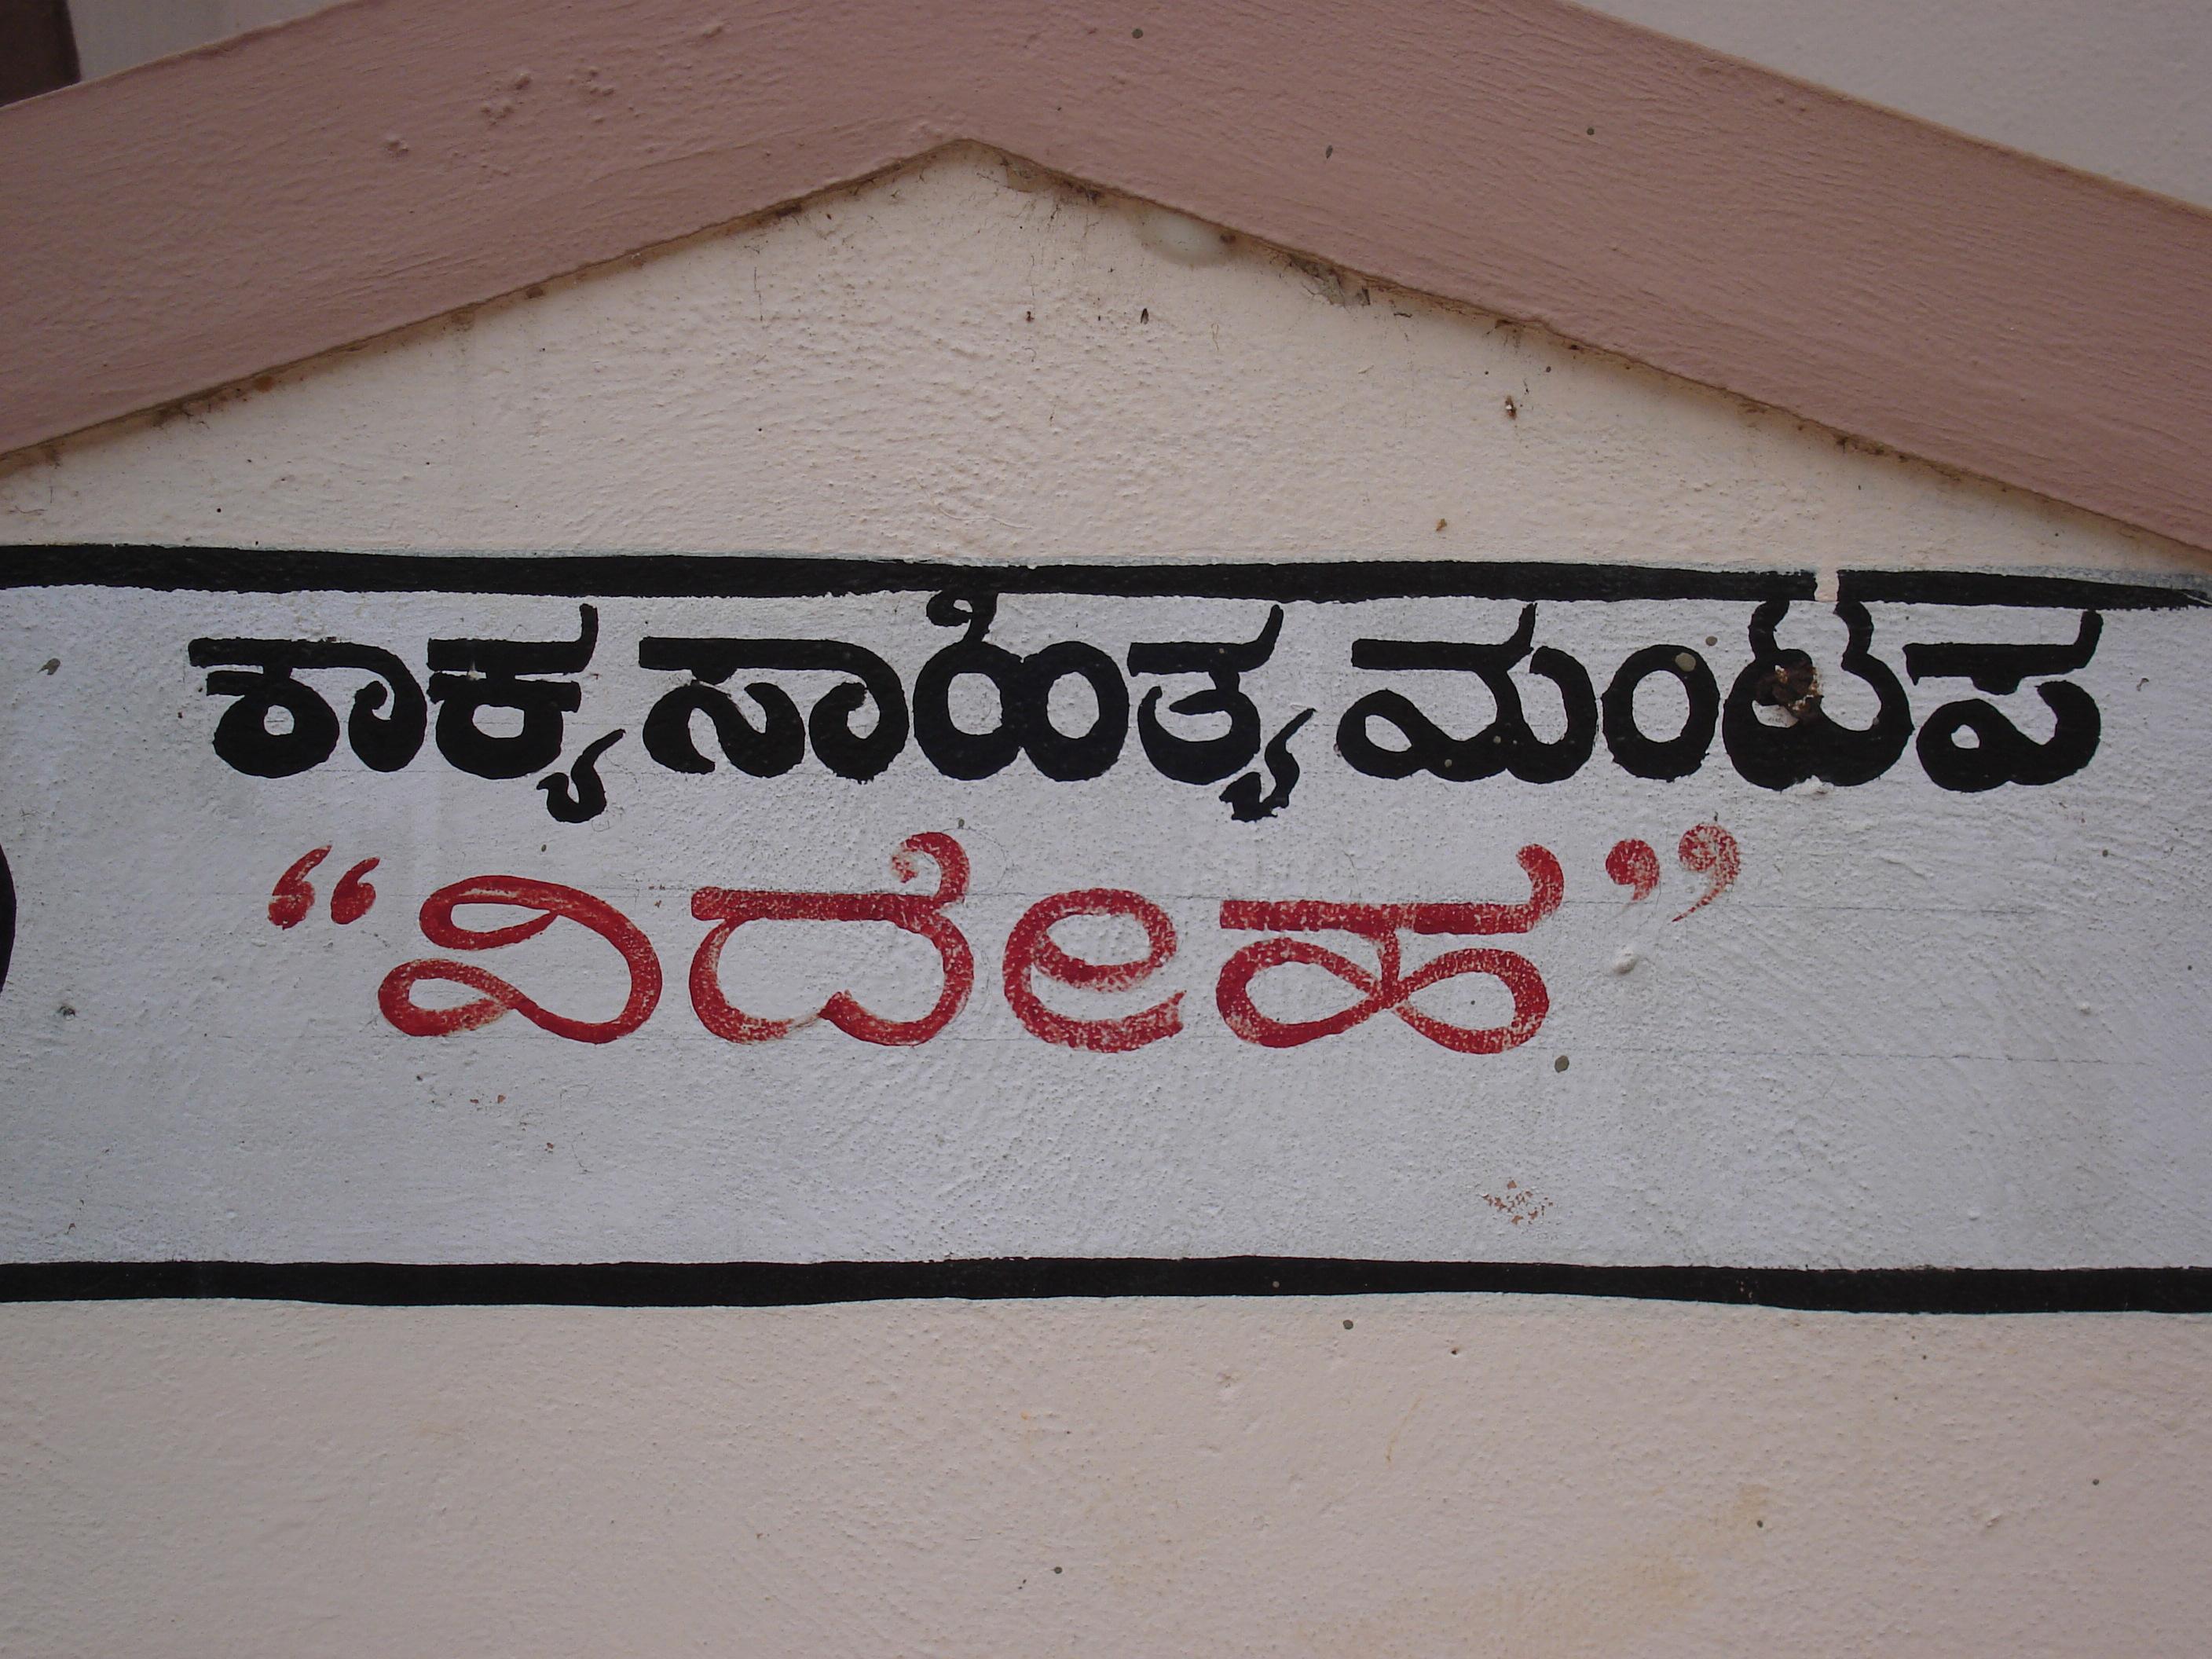 ಶಾಕ್ಯ ಸಾಹಿತ್ಯ ಮಂಟಪ
“ವಿದೇಹ”